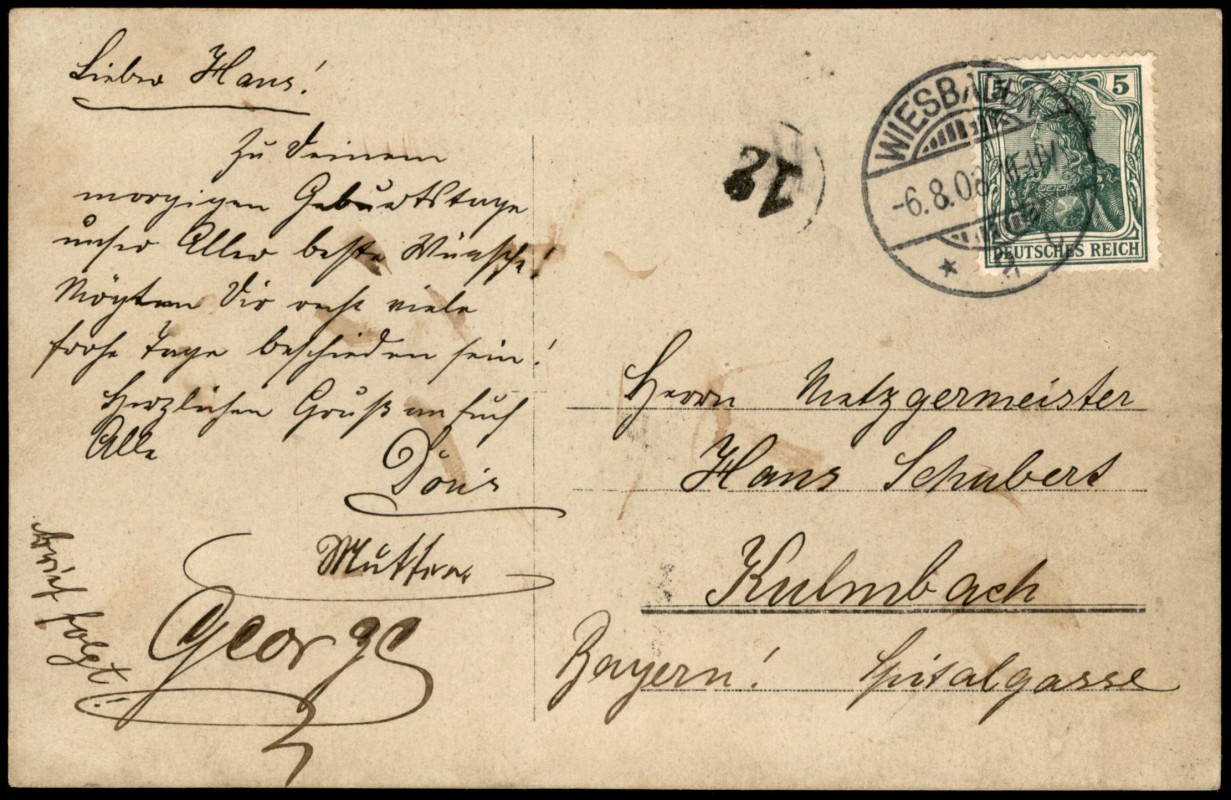 Lieber Hans!
Zu Deinem
morgigen Geburtstage
unser Aller beste Wünsche!
Mögten Dir recht viele
frohe Tage beschieden sein!
Herzlichen Gruß an Euch
Alle
Doris
Mutter
George
Brief folgt!
12
WIESBADEN
-6.8.08.
5
DEUTSCHES REICH
Herrn Metzgermeister
Hans Schubert
Kulmbach
Bayern! Spitalgasse